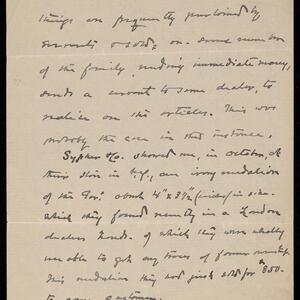 things are frequently purloined by
servants & sold, or some member
of the family, needing immediate money,
sends a servant to some dealer, to
realize on the articles. This was
probably the case in this instance.
Sypher & Co. showed me, in October, at
their store in N.Y., an ivory medallion
of the Gov. about 4" x 3½ (inches) in size
which they found recently in a London
dealers hands. of which they were wholly
unable to get any traces of former ownership
This medallion they had just sold for $850-
to some customer.